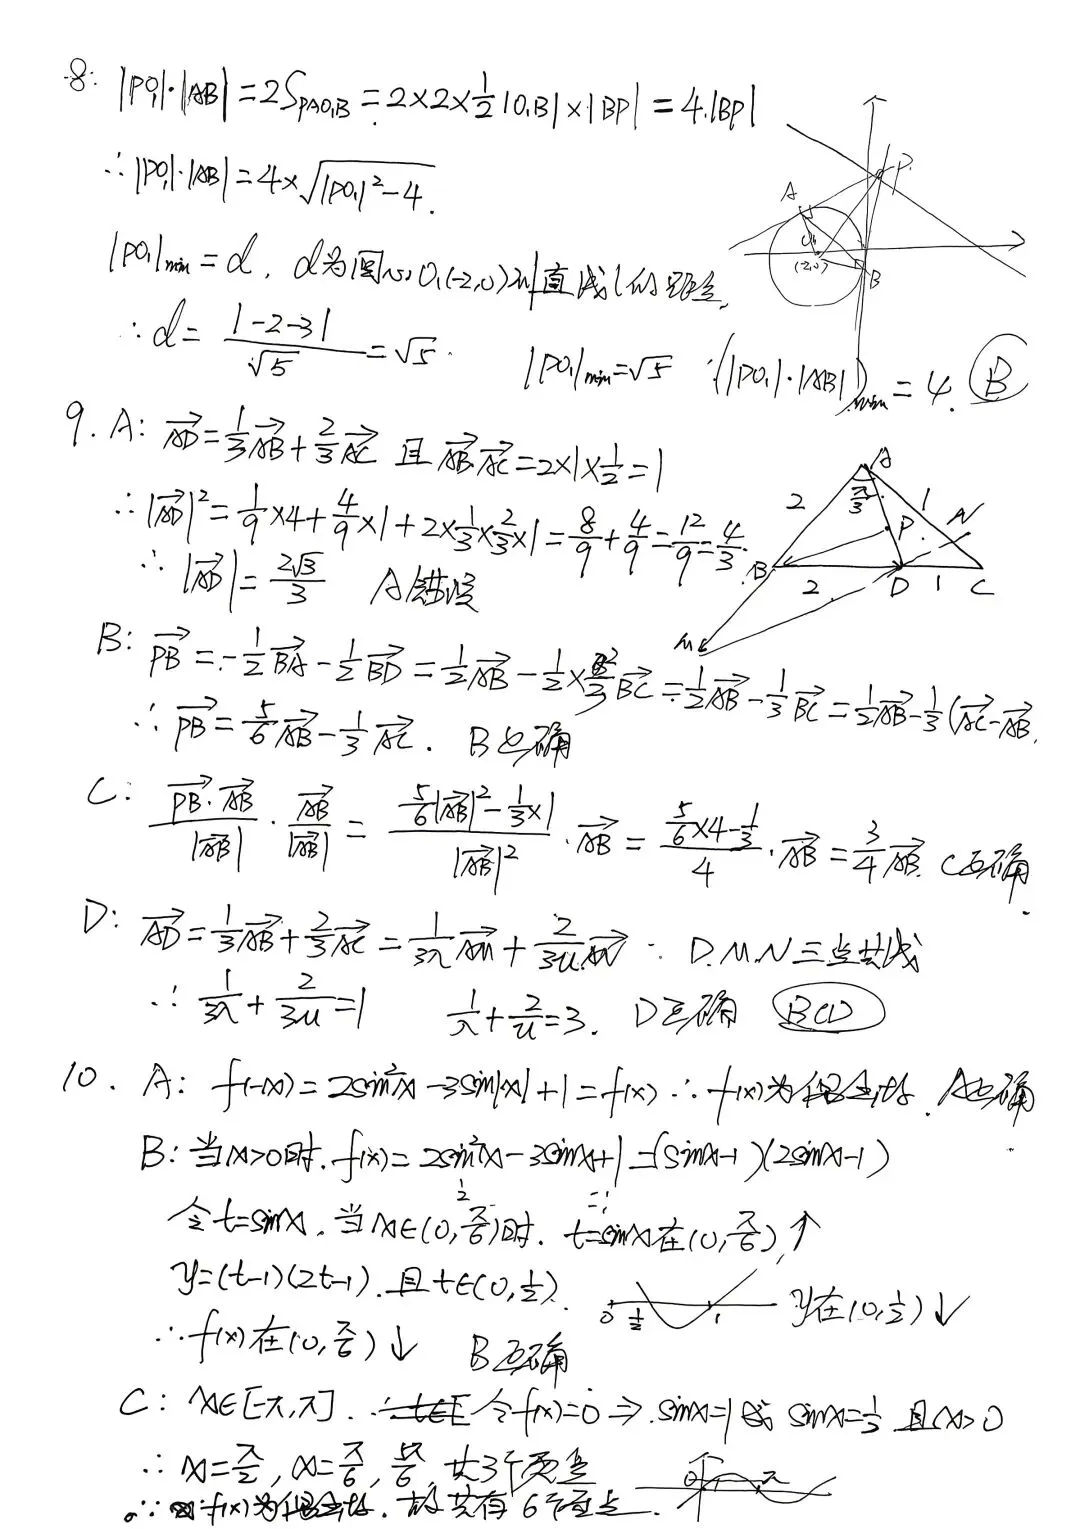 8: |PO₁|·|AB| = 2S_{PAO₁B} = 2×2×\frac{1}{2}|O₁B|×|BP| = 4·|BP|
∴ |PO₁|·|AB| = 4×\sqrt{|PO₁|²-4}.
|PO₁|_{min} = d, d为圆心O₁(-2,0)到直线l的距离,
∴ d = \frac{|-2-3|}{\sqrt{5}} = \sqrt{5}. |PO₁|_{min}=\sqrt{5} ∴(|PO₁|·|AB|)_{min} = 4. B
A P O₁ (-2,0) B
9. A: \vec{AD}=\frac{1}{3}\vec{AB}+\frac{2}{3}\vec{AC} 且 \vec{AB}·\vec{AC}=2×1×\frac{1}{2}=1
∴ |\vec{AD}|²=\frac{1}{9}×4+\frac{4}{9}×1+2×\frac{1}{3}×\frac{2}{3}×1=\frac{8}{9}+\frac{4}{9}=\frac{12}{9}=\frac{4}{3}.
∴ |\vec{AD}|=\frac{2\sqrt{3}}{3} A错误
A 2 \frac{π}{3} 1 P N B 2 D 1 C M
B: \vec{PB}=-\frac{1}{2}\vec{BA}-\frac{1}{2}\vec{BD}=\frac{1}{2}\vec{AB}-\frac{1}{2}×\frac{2}{3}\vec{BC}=\frac{1}{2}\vec{AB}-\frac{1}{3}\vec{BC}=\frac{1}{2}\vec{AB}-\frac{1}{3}(\vec{AC}-\vec{AB}
∴ \vec{PB}=\frac{5}{6}\vec{AB}-\frac{1}{3}\vec{AC}. B正确
C: \frac{\vec{PB}·\vec{AB}}{|\vec{AB}|}·\frac{\vec{AB}}{|\vec{AB}|}=\frac{\frac{5}{6}|\vec{AB}|²-\frac{1}{3}×1}{|\vec{AB}|²}·\vec{AB}=\frac{\frac{5}{6}×4-\frac{1}{3}}{4}·\vec{AB}=\frac{3}{4}\vec{AB}. C正确.
D: \vec{AD}=\frac{1}{3}\vec{AB}+\frac{2}{3}\vec{AC}=\frac{1}{3λ}\vec{AM}+\frac{2}{3u}\vec{AN} ∵ D.M.N三点共线
∴ \frac{1}{3λ}+\frac{2}{3u}=1 \frac{1}{λ}+\frac{2}{u}=3. D正确 BCD
10. A: f(-x)=2sin²x-3sin|x|+1=f(x) ∴ f(x)为偶函数. A正确
B: 当x>0时. f(x)=2sin²x-3sinx+1=(sinx-1)(2sinx-1)
令t=sinx. 当x∈(0,\frac{π}{6})时. t=sinx在(0,\frac{π}{6})↑
y=(t-1)(2t-1). 且t∈(0,\frac{1}{2}). 0 \frac{1}{2} 1 y在(0,\frac{1}{2})↓
∴ f(x)在(0,\frac{π}{6})↓ B正确
C: x∈[-π,π]. 令f(x)=0 ⇒ sinx=1或 sinx=\frac{1}{2} 且x>0
∴ x=\frac{π}{2}, x=\frac{π}{6}, \frac{5π}{6}, 共3个零点 0 π
∵ f(x)为偶函数. 故共有6个零点.